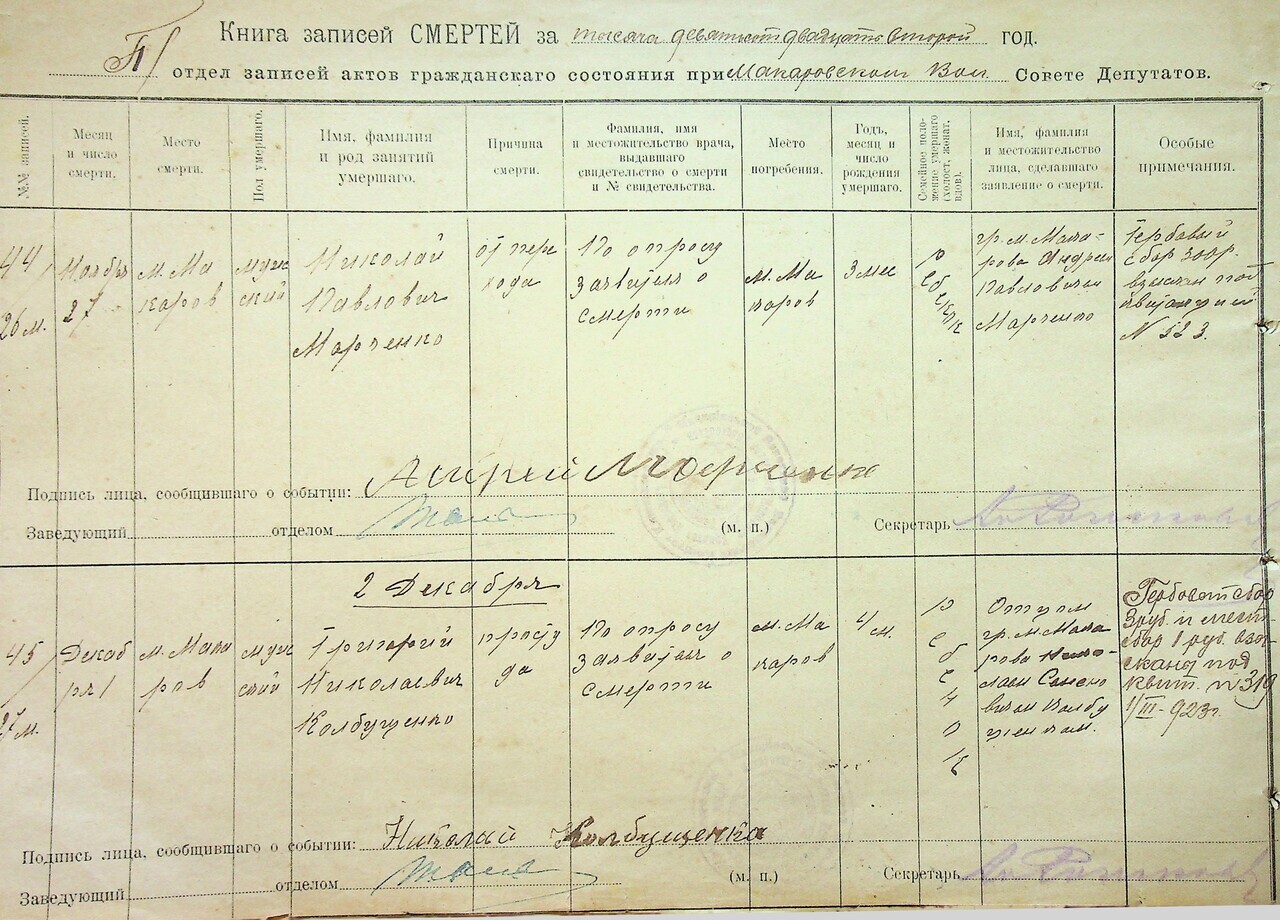 Книга записей СМЕРТЕЙ за тысяча девятьсот двадцать второй год.
отдел записей актов гражданскаго состояния при Макаровском Вол. Совете Депутатов.
№№ записей.
Месяц
и число
смерти.
Место
смерти.
Пол умершаго.
Имя, фамилия
и род занятий
умершаго.
Причина
смерти.
Фамилия, имя
и местожительство врача,
выдавшаго
свидетельство о смерти
и № свидетельства.
Место
погребения.
Годъ,
месяц и
число
рождения
умершаго.
Семейное поло-
жение умершаго
(холост, женат,
вдов).
Имя, фамилия
и местожительство
лица, сделавшаго
заявление о смерти.
Особые
примечания.
44
26 м.
Ноябрь
27
м. Ма
каров
муж
ский
Николай
Павлович
Марченко
По опросу
о
смерти
м. Ма
каров
3 мес
ребенок
гр. м. Мака-
рова Андреем
Павловичем
Марченко
Гербовый
сбор
взыскан под
N 523.
Подпись лица, сообщившаго о событии: Андрей Марченко
Заведующий отделом (м. п.) Секретарь
2 Декабря
45
27 м.
Декаб
ря 1
м. Мака
ров
муж
ский
Григорий
Николаевич
Колбущенко
просту
да
По опросу
о
смерти
м. Ма
каров
4 м.
ребенок
Отцом
гр. м. Мака
рова Нико-
лаем
вичем Колбу
щенком.
Гербовый сбор
3 руб. и мест
сбор 1 руб. взы-
сканы под
квит. N 319
1/III-923г.
Подпись лица, сообщившаго о событии: Николай Колбущенко
Заведующий отделом (м. п.) Секретарь